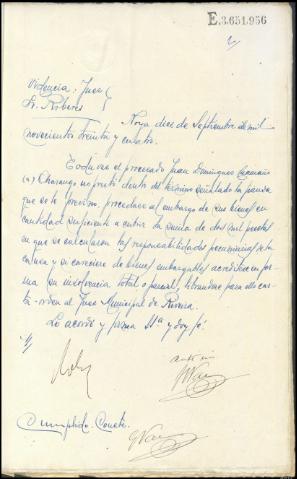 E.3.651.956
Providencia: Juez
Sr. Robles
Noya diez de Septiembre de mil
novecientos treinta y cuatro.
Toda vez el procesado Juan Domínguez
(a) Charango no prestó dentro del término señalado la fianza
que se le previno, procédase al embargo de sus bienes en
cantidad suficiente a cubrir la suma de dos mil pesetas
en que se calcularon las responsabilidades pecuniarias de la
causa y si careciere de bienes embargables acredítese en for-
ma su insolvencia total o parcial, librándose para ello car-
ta-orden al Juez Municipal de Riveira.
Lo acordó y firma SSª y doy fé.
Cumplido. Conste.